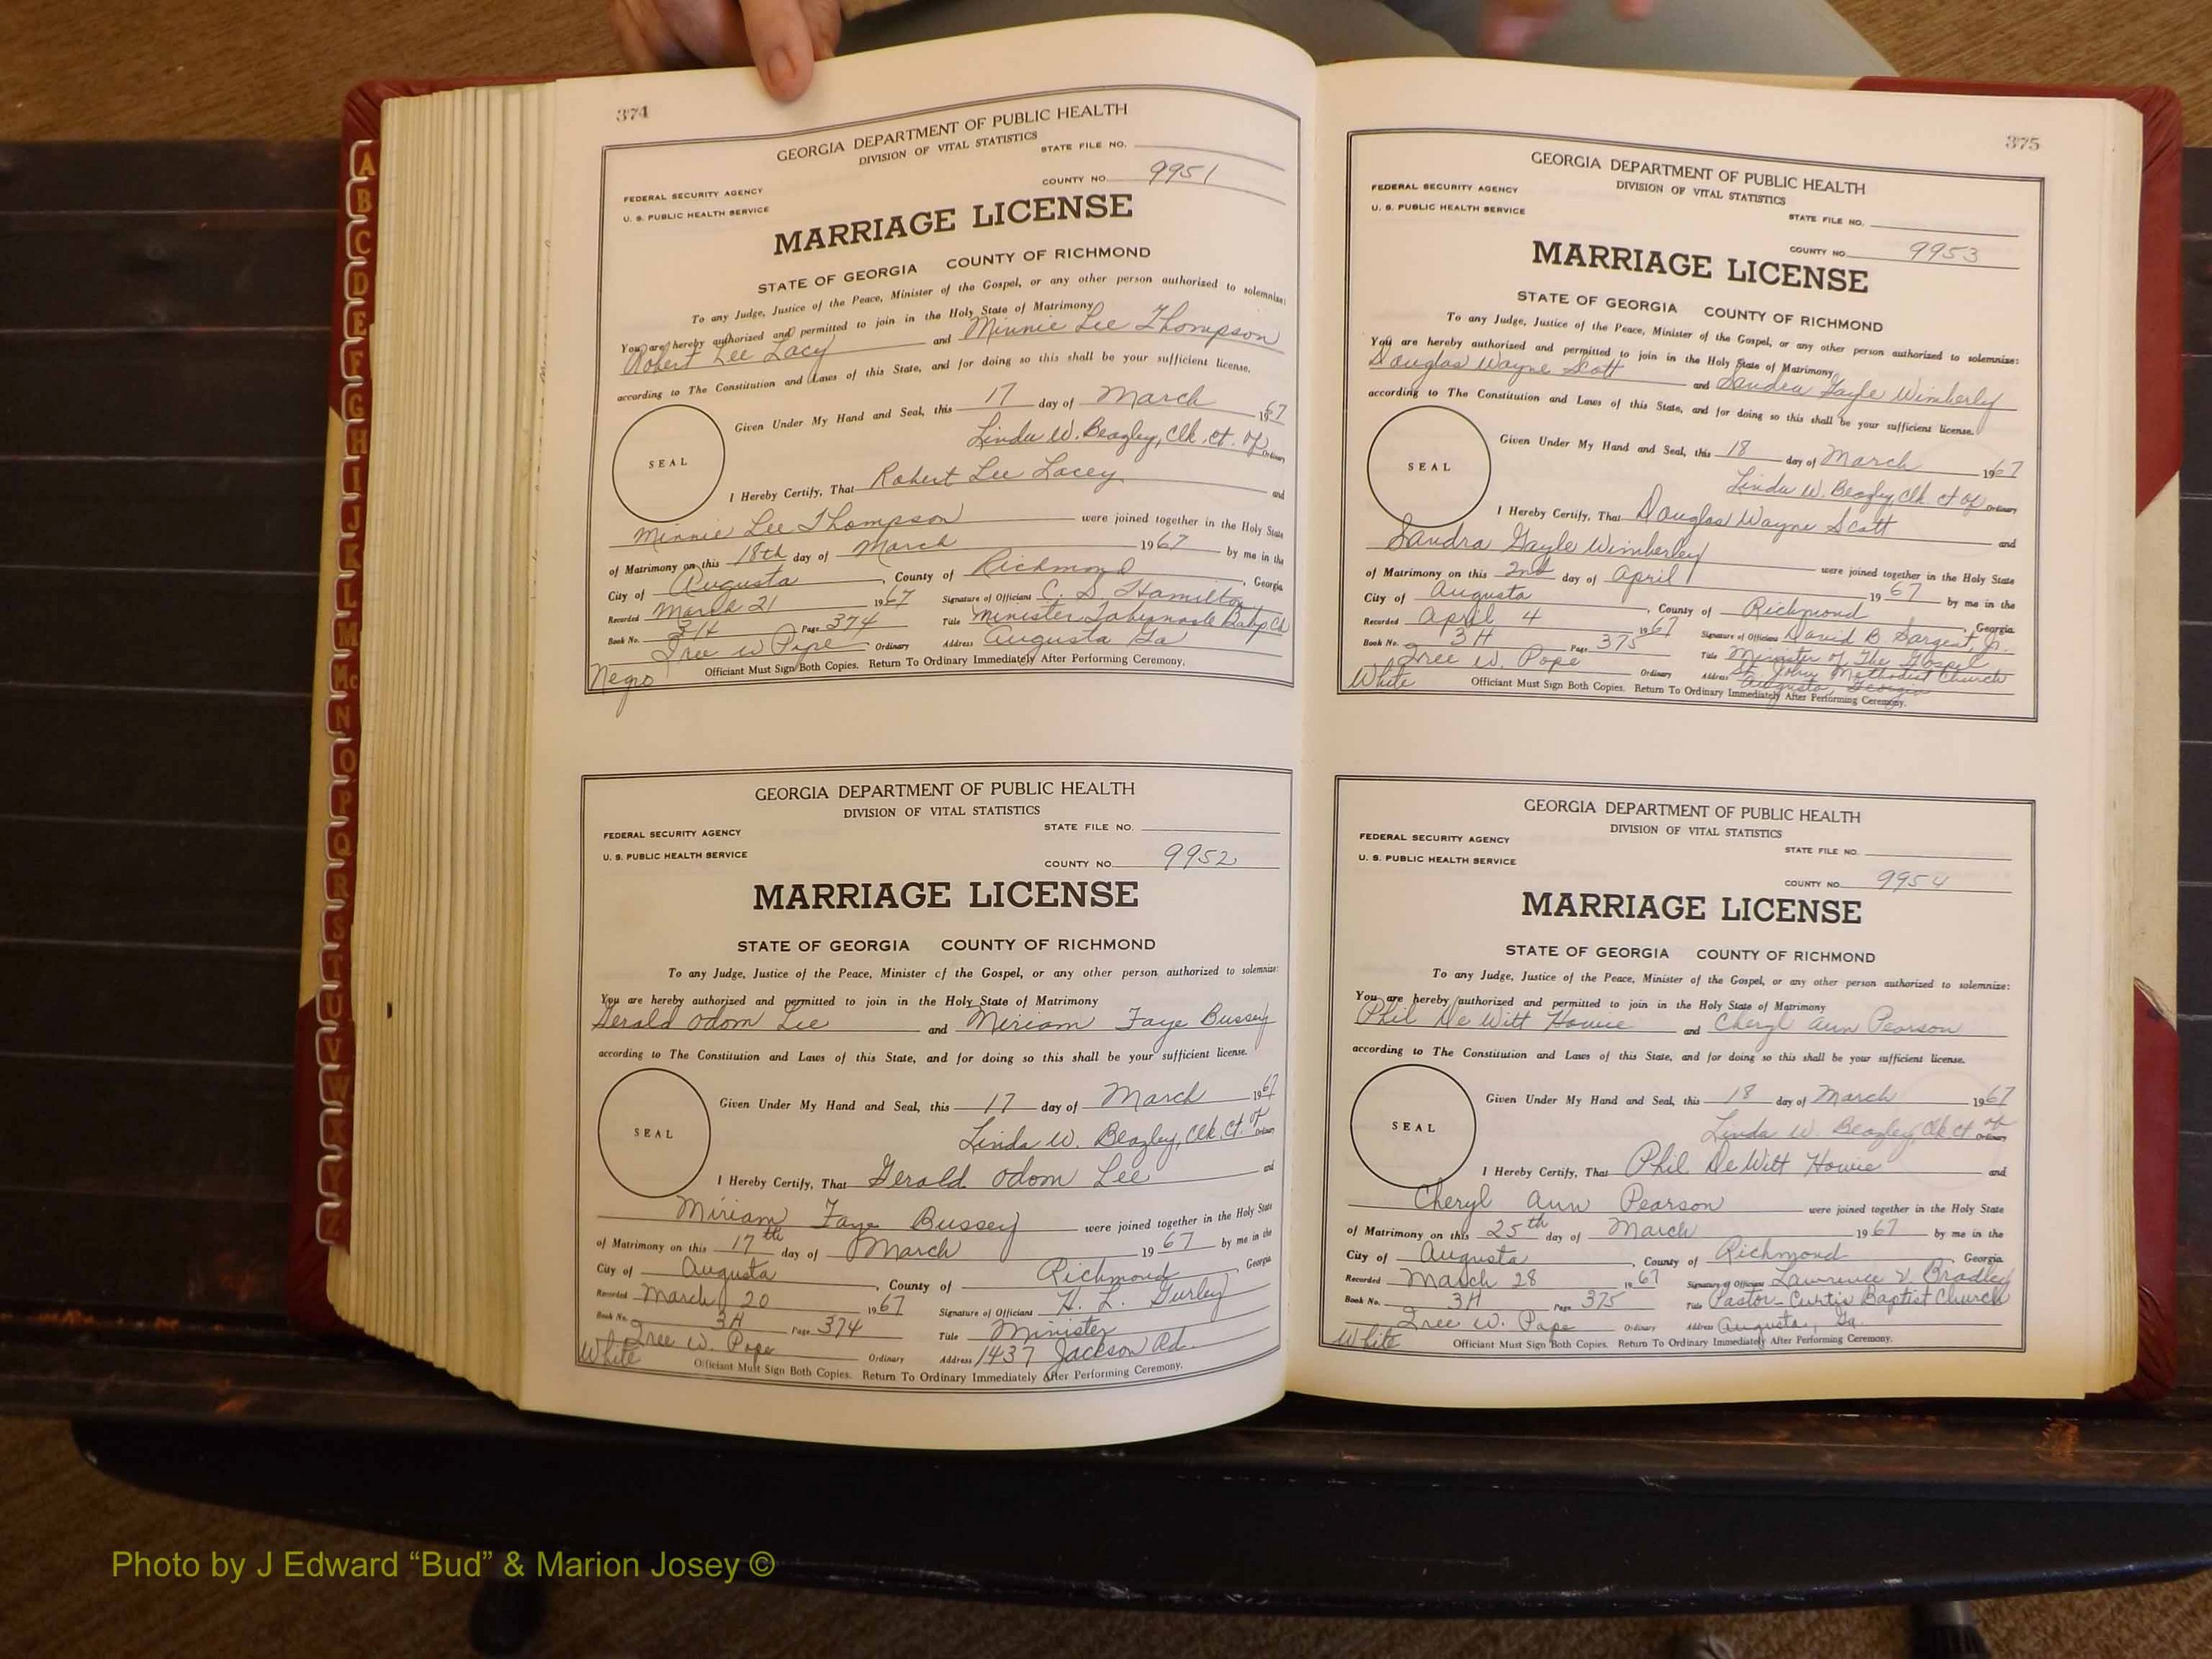 374
GEORGIA DEPARTMENT OF PUBLIC HEALTH
DIVISION OF VITAL STATISTICS
STATE FILE NO.
FEDERAL SECURITY AGENCY
COUNTY NO. 9951
U. S. PUBLIC HEALTH SERVICE
MARRIAGE LICENSE
STATE OF GEORGIA COUNTY OF RICHMOND
To any Judge, Justice of the Peace, Minister of the Gospel, or any other person authorized to solemnize:
You are hereby authorized and permitted to join in the Holy State of Matrimony
Robert Lee Lacy and Minnie Lee Thompson
according to The Constitution and Laws of this State, and for doing so this shall be your sufficient license.
Given Under My Hand and Seal, this 17 day of March 1967
Linda W. Beazley, Clk. Ct. of Ordinary
SEAL
I Hereby Certify, That Robert Lee Lacey and
Minnie Lee Thompson were joined together in the Holy State
of Matrimony on this 18th day of March 1967 by me in the
City of Augusta, County of Richmond, Georgia
Recorded March 21 1967 Signature of Officiant C. S. Hamilton
Book No. 3H Page 374 Title Minister Tabernacle Bapt Ch
Iree W Pope Ordinary Address Augusta Ga
Negro Officiant Must Sign Both Copies. Return To Ordinary Immediately After Performing Ceremony.
GEORGIA DEPARTMENT OF PUBLIC HEALTH
DIVISION OF VITAL STATISTICS
STATE FILE NO.
FEDERAL SECURITY AGENCY
U. S. PUBLIC HEALTH SERVICE
COUNTY NO. 9952
MARRIAGE LICENSE
STATE OF GEORGIA COUNTY OF RICHMOND
To any Judge, Justice of the Peace, Minister of the Gospel, or any other person authorized to solemnize:
You are hereby authorized and permitted to join in the Holy State of Matrimony
Gerald Odom Lee and Miriam Faye Bussey
according to The Constitution and Laws of this State, and for doing so this shall be your sufficient license.
Given Under My Hand and Seal, this 17 day of March 1967
Linda W. Beazley, Clk. Ct. of Ordinary
SEAL
I Hereby Certify, That Gerald Odom Lee and
Miriam Faye Bussey were joined together in the Holy State
of Matrimony on this 17th day of March 1967 by me in the
City of Augusta, County of Richmond, Georgia
Recorded March 20 1967 Signature of Officiant H. L. Gurley
Book No. 3H Page 374 Title Minister
Iree W. Pope Ordinary Address 1437 Jackson Rd.
White Officiant Must Sign Both Copies. Return To Ordinary Immediately After Performing Ceremony.
375
GEORGIA DEPARTMENT OF PUBLIC HEALTH
DIVISION OF VITAL STATISTICS
FEDERAL SECURITY AGENCY
U. S. PUBLIC HEALTH SERVICE
STATE FILE NO.
COUNTY NO. 9953
MARRIAGE LICENSE
STATE OF GEORGIA COUNTY OF RICHMOND
To any Judge, Justice of the Peace, Minister of the Gospel, or any other person authorized to solemnize:
You are hereby authorized and permitted to join in the Holy State of Matrimony
Douglas Wayne Scott and Sandra Gayle Wimberly
according to The Constitution and Laws of this State, and for doing so this shall be your sufficient license.
Given Under My Hand and Seal, this 18 day of March 1967
Linda W. Beazley, Clk. Ct of Ordinary
SEAL
I Hereby Certify, That Douglas Wayne Scott and
Sandra Gayle Wimberley were joined together in the Holy State
of Matrimony on this 2nd day of April 1967 by me in the
City of Augusta, County of Richmond, Georgia
Recorded April 4 1967 Signature of Officiant David B Sargent, Jr.
Book No. 3H Page 375 Title Minister of The Gospel
Iree W. Pope Ordinary Address St. John Methodist Church
Augusta, Georgia
White Officiant Must Sign Both Copies. Return To Ordinary Immediately After Performing Ceremony.
GEORGIA DEPARTMENT OF PUBLIC HEALTH
DIVISION OF VITAL STATISTICS
FEDERAL SECURITY AGENCY
STATE FILE NO.
U. S. PUBLIC HEALTH SERVICE
COUNTY NO. 9954
MARRIAGE LICENSE
STATE OF GEORGIA COUNTY OF RICHMOND
To any Judge, Justice of the Peace, Minister of the Gospel, or any other person authorized to solemnize:
You are hereby authorized and permitted to join in the Holy State of Matrimony
Phil DeWitt Howie and Cheryl Ann Pearson
according to The Constitution and Laws of this State, and for doing so this shall be your sufficient license.
Given Under My Hand and Seal, this 18 day of March 1967
Linda W. Beazley, Clk Ct of Ordinary
SEAL
I Hereby Certify, That Phil DeWitt Howie and
Cheryl Ann Pearson were joined together in the Holy State
of Matrimony on this 25th day of March 1967 by me in the
City of Augusta, County of Richmond, Georgia
Recorded March 28 1967 Signature of Officiant Lawrence V. Bradley
Book No. 3H Page 375 Title Pastor - Curtis Baptist Church
Iree W. Pope Ordinary Address Augusta, Ga.
White Officiant Must Sign Both Copies. Return To Ordinary Immediately After Performing Ceremony.
A
B
C
D
E
F
G
H
I
J
K
L
M
Mc
N
O
P
Q
R
S
T
U
V
W
X
Y
Z
Photo by J Edward “Bud” & Marion Josey ©